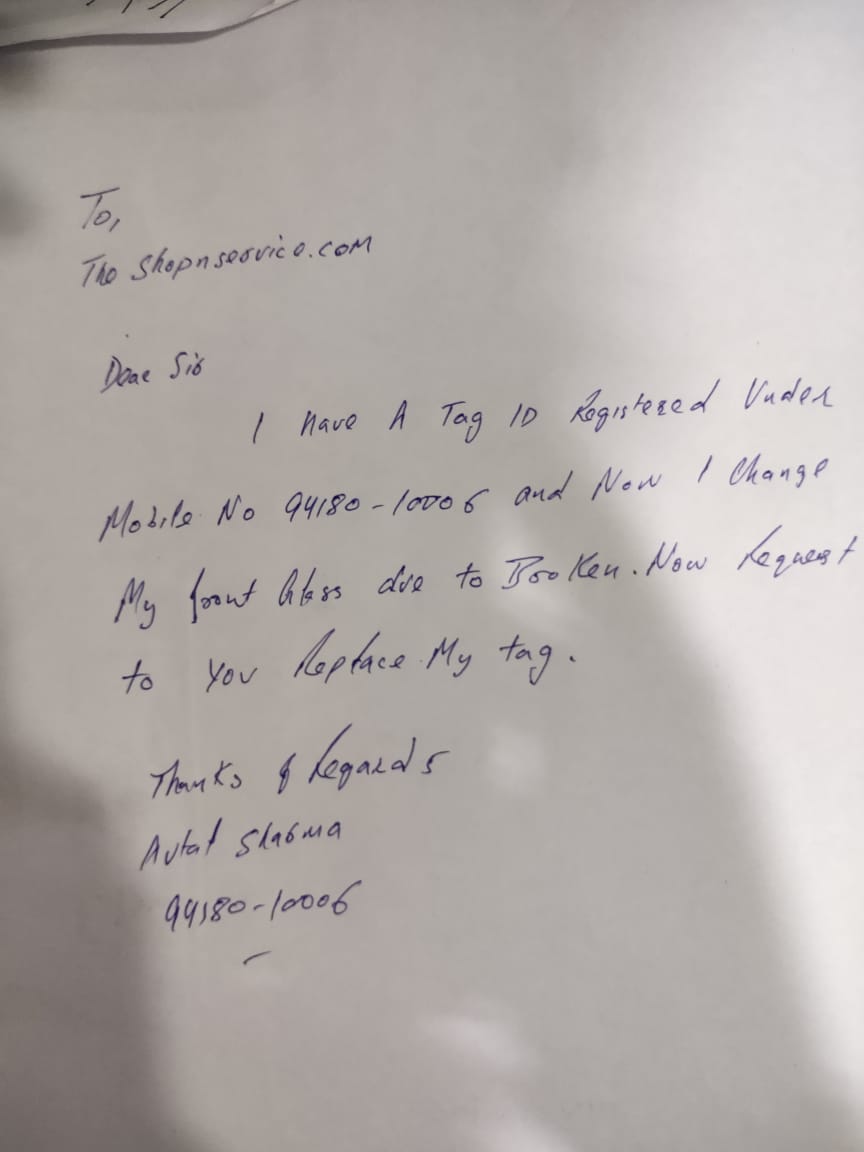 To,
The Shopnservice.com
Dear Sir
I Have A Tag ID Registered Under
Mobile No 94180-10006 and Now I Change
My front Glass due to Broken. Now Request
to You Replace My tag.
Thanks & Regards
Avtar Sharma
94180-10006